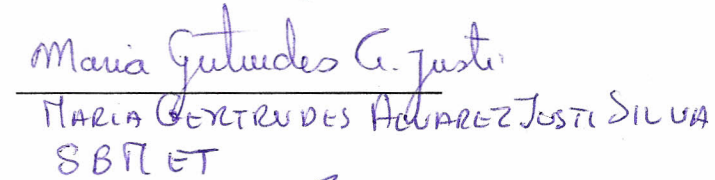 Maria Gertrudes A. Justi
MARIA GERTRUDES ALVAREZ JUSTI SILVA
SBMET